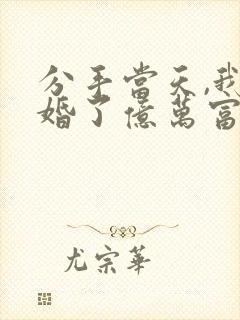 分手當天,我
婚了億萬富
尤宗華